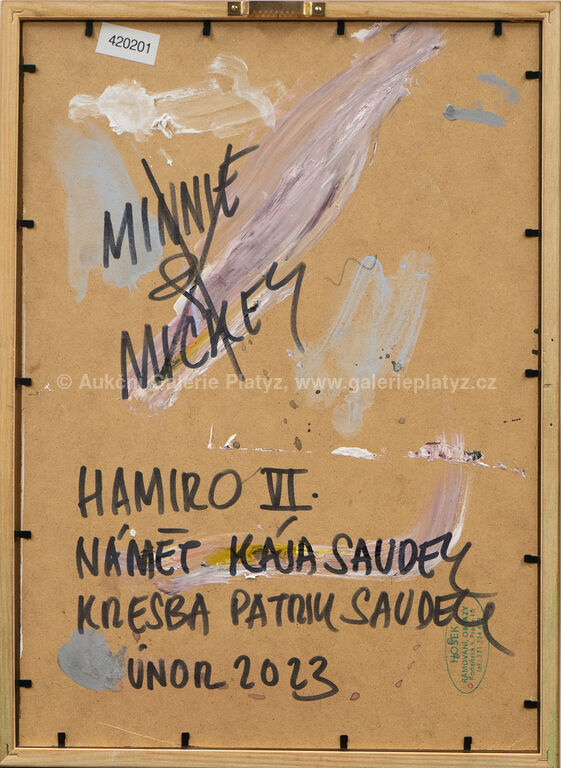 420201
MINNIE
&
MICKEY
© Aukční Galerie Platýz, www.galerieplatyz.cz
HAMIRO VI.
NÁMĚT KÁJA SAUDEK
KRESBA PATRIK SAUDEK
ÚNOR 2023
HOŠEK
RÁMOVÁNÍ, OBRAZY